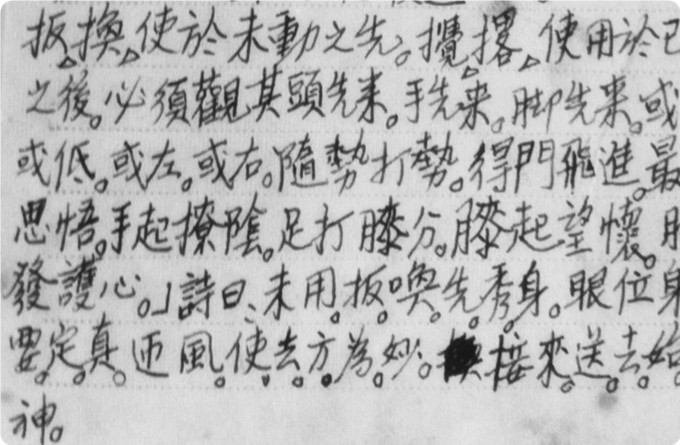 扳換、使於未動之先。攪撂、使用於已
之後。必須觀其頭先来。手先来。脚先来。或
或低。或左。或右。隨勢打勢。得門飛進。最
思悟。手起撩陰。足打膝分。膝起望懷。
發護心。」詩曰、未用。扳。喚。先。秀。身。眼位身
要。定。真。迊風。使。去。方。為。妙。接來。送。去。始
神。